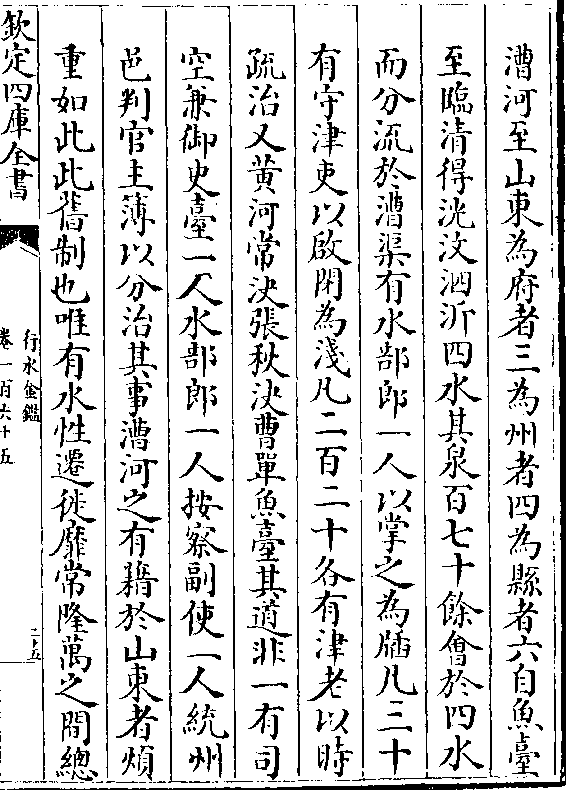 漕河至山東為府者三為州者四為縣者六自魚臺
至臨清得洸汶泗沂四水其泉百七十餘會於四水
而分流於漕渠有水部郎一人以掌之為牐凡三十
有守津吏以啟閉為淺凡二百二十各有津老以時
疏治又黄河常決張秋決曹單魚臺其道非一有司
空兼御史臺一人水部郎一人按察副使一人統州
邑判官主簿以分治其事漕河之有籍於山東者煩
重如此此舊制也唯有水性遷徙靡常隆萬之間總
欽定四庫全書
行水金鑑
卷一百六十五
二十五